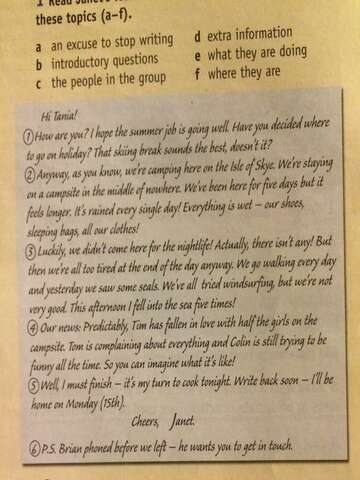 these topics (a–f).
a an excuse to stop writing
b introductory questions
c the people in the group
d extra information
e what they are doing
f where they are
Hi Tania!
① How are you? I hope the summer job is going well. Have you decided where
to go on holiday? That skiing break sounds the best, doesn't it?
② Anyway, as you know, we're camping here on the Isle of Skye. We're staying
on a campsite in the middle of nowhere. We've been here for five days but it
feels longer. It's rained every single day! Everything is wet – our shoes,
sleeping bags, all our clothes!
③ Luckily, we didn't come here for the nightlife! Actually, there isn't any! But
then we're all too tired at the end of the day anyway. We go walking every day
and yesterday we saw some seals. We've all tried windsurfing, but we're not
very good. This afternoon I fell into the sea five times!
④ Our news: Predictably, Tim has fallen in love with half the girls on the
campsite. Tom is complaining about everything and Colin is still trying to be
funny all the time. So you can imagine what it's like!
⑤ Well, I must finish – it's my turn to cook tonight. Write back soon – I'll be
home on Monday (15th).
Cheers, Janet.
⑥ P.S. Brian phoned before we left – he wants you to get in touch.